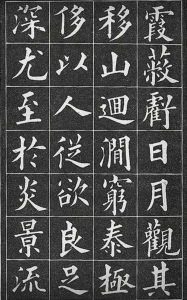 霞蔽虧日月觀其
移山迴澗窮泰極
侈以人從欲良足
深尤至於炎景流